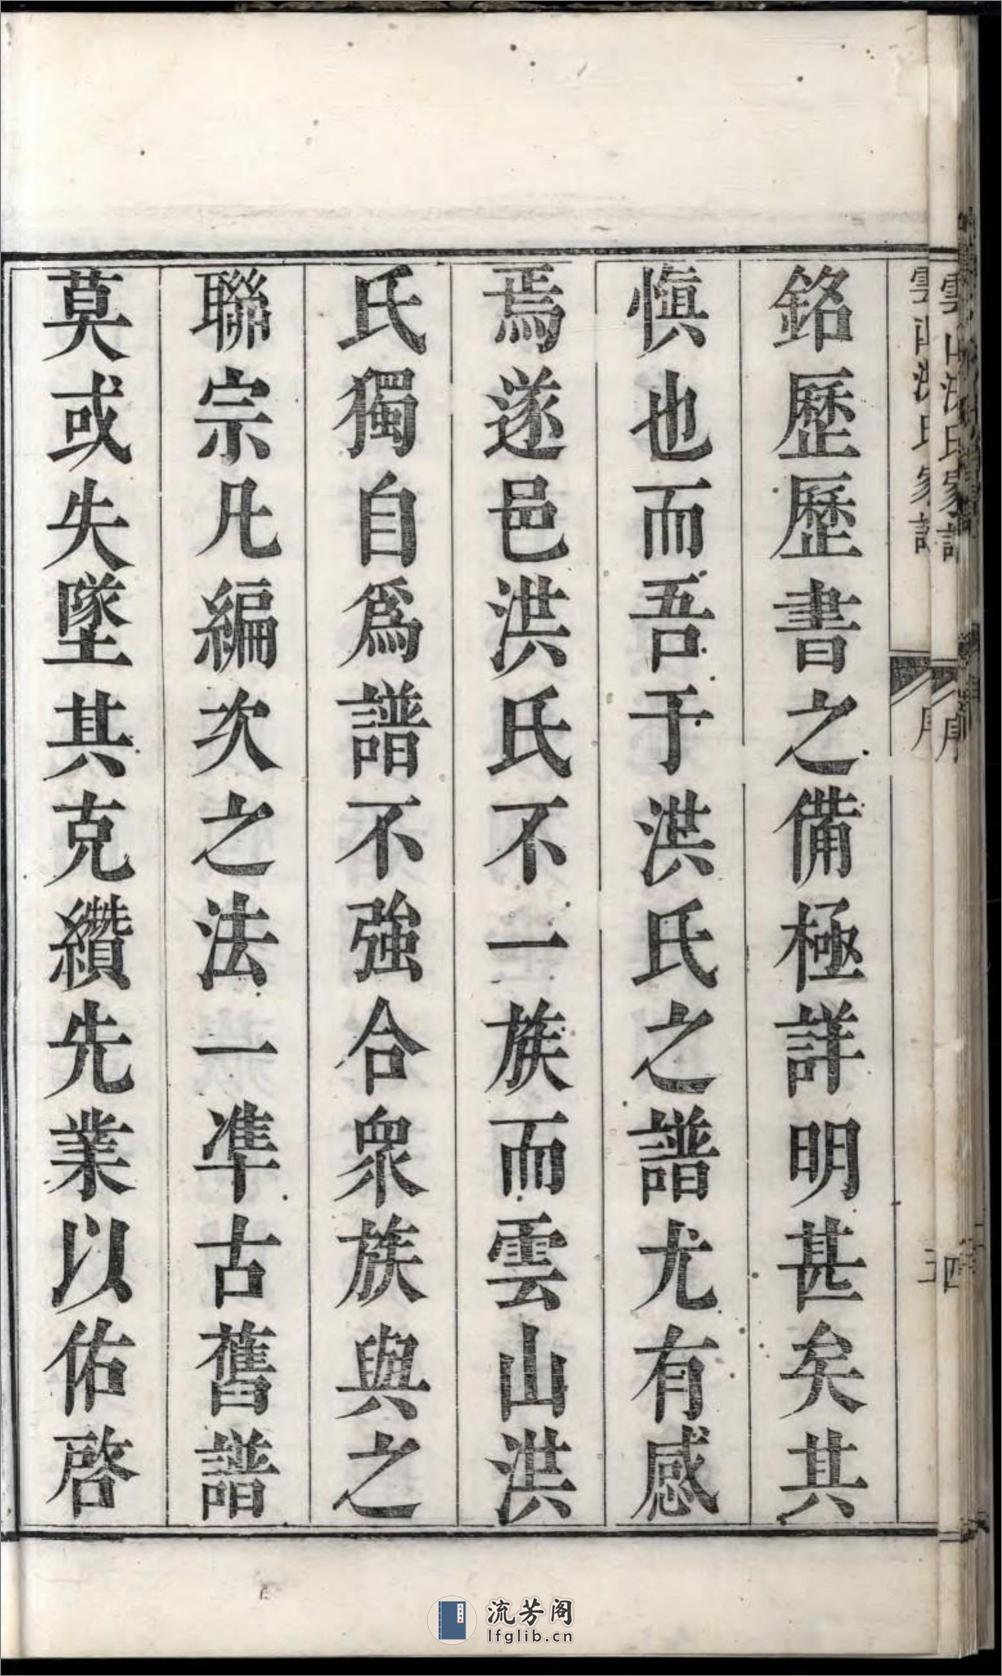 雲山洪氏家譜
序
四
銘歷歷書之備極詳明甚矣其
慎也而吾于洪氏之譜尤有感
焉遂邑洪氏不一族而雲山洪
氏獨自爲譜不強合衆族與之
聯宗凡編次之法一凖古舊譜
莫或失墜其克纘先業以佑啓
流芳阁
lfglib.cn